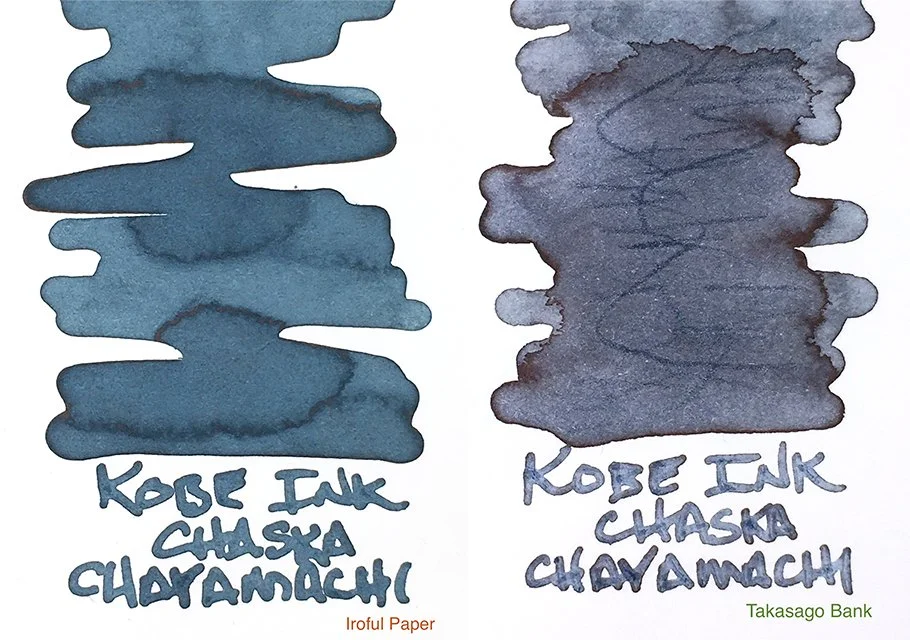 KOBE INK
CHASKA
CHAYAMACHI
Iroful Paper
KOBE INK
CHASKA
CHAYAMACHI
Takasago Bank